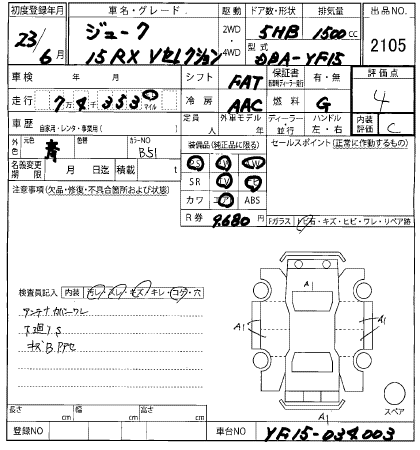 初度登録年月 車名・グレード 駆動 ドア数・形状 排気量 出品NO
23年6月 ジューク 2WD・4WD 5HB 1500cc 2105
15RX Vセレクション 型式 DBA-YF15
車検 年 月 シフト FAT 保証書 有・無 評価点 4
走行 7万4千353 マイル 冷房 AAC 燃料 G
車歴 自家用・レンタ・事業用( ) 定員 人 外車モデル 年 ディーラー・並行 ハンドル 左・右 内装評価 C
外色 元色 青 色替 カラーNO B51 装備品(純正品に限る) セールスポイント(正常に作動するもの)
名義変更期限 月 日迄 積載 t PS
注意事項(欠品・修復・不具合箇所および状態) SR
カワ ABS
R券 9680円 Fガラス トビ石・キズ・ヒビ・ワレ・リペア跡
検査員記入 内装 汚レ・スレ・キズ・キレ・コゲ・穴
アンテナカバーワレ
下廻りS
キズB.P.アセ
A1
A1 A1
A1
スペア
長さ cm 幅 cm 高さ cm
登録NO 車台NO YF15-034003